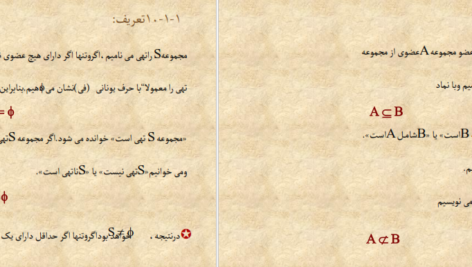 ۱-۱-۱۰تعریف:
مجموعهS راتهی می نامیم ،اگروتنها اگر دارای هیچ عضوی
تهی را معمولا"با حرف یونانی (فی)نشان می ϕدهیم.بنابراین
= ϕ
«مجموعه S تهی است» خوانده می شود.اگر مجموعه Sتهی
ومی خوانیم«Sتهی نیست» یا «Sناتهی است».
ϕ
درنتیجه ، S ≠ ϕ خواهد بوداگروتنها اگر حداقل دارای یک
عضو مجموعه Aعضوی از مجموعه
یم وبا نماد
A ⊆ B
Bاست» یا «Bشامل Aاست».
یم.
می نویسیم
A ⊄ B